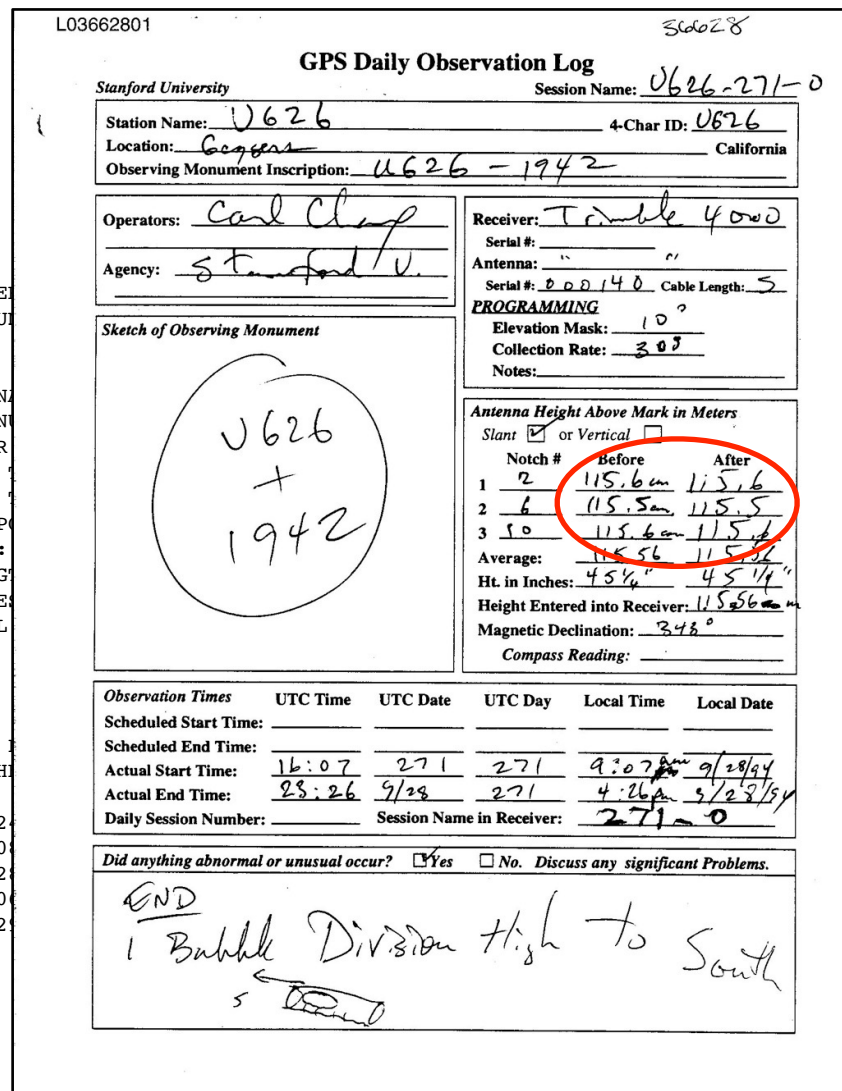 L03662801 36628
GPS Daily Observation Log
Stanford University Session Name: U626-271-0
Station Name: U626 4-Char ID: U626
Location: Geysers California
Observing Monument Inscription: U626 - 1942
Operators: Carl
Agency: Stanford U.
Receiver: Trimble 4000
Serial #:
Antenna: " "
Serial #: 000140 Cable Length: 5
PROGRAMMING
Elevation Mask: 10°
Collection Rate: 30s
Notes:
Sketch of Observing Monument
U626
+
1942
Antenna Height Above Mark in Meters
Slant or Vertical
Notch # Before After
1 2 115.6 cm 115.6
2 6 115.5 cm 115.5
3 10 115.6 cm 115.6
Average: 115.56 115.56
Ht. in Inches: 45 1/4" 45 1/4"
Height Entered into Receiver: 115.56
Magnetic Declination: 348°
Compass Reading:
Observation Times UTC Time UTC Date UTC Day Local Time Local Date
Scheduled Start Time:
Scheduled End Time:
Actual Start Time: 16:07 271 271 9:07 am 9/28/94
Actual End Time: 23:26 9/28 271 4:26 pm 9/28/94
Daily Session Number: Session Name in Receiver: 271-0
Did anything abnormal or unusual occur? Yes No. Discuss any significant Problems.
END
1 Bubble Division High to South
S